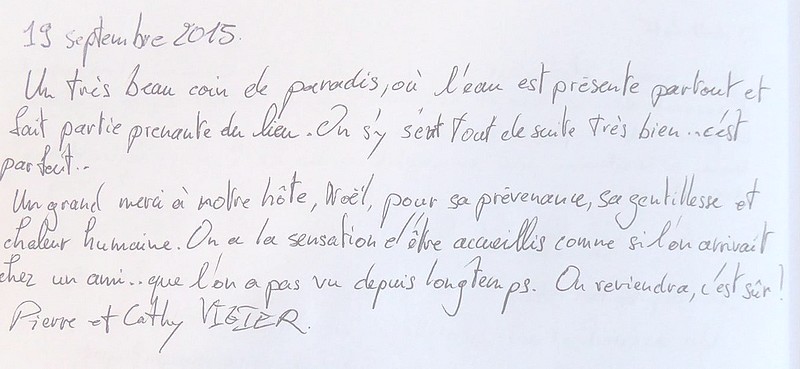 19 septembre 2015.
Un très beau coin de paradis, où l'eau est présente partout et
fait partie prenante du lieu. On s'y sent tout de suite très bien.. c'est
parfait..
Un grand merci à notre hôte, Noël, pour sa prévenance, sa gentillesse et
chaleur humaine. On a la sensation d'être accueillis comme si l'on arrivait
chez un ami.. que l'on a pas vu depuis longtemps. On reviendra, c'est sûr!
Pierre et Cathy VIGIER.